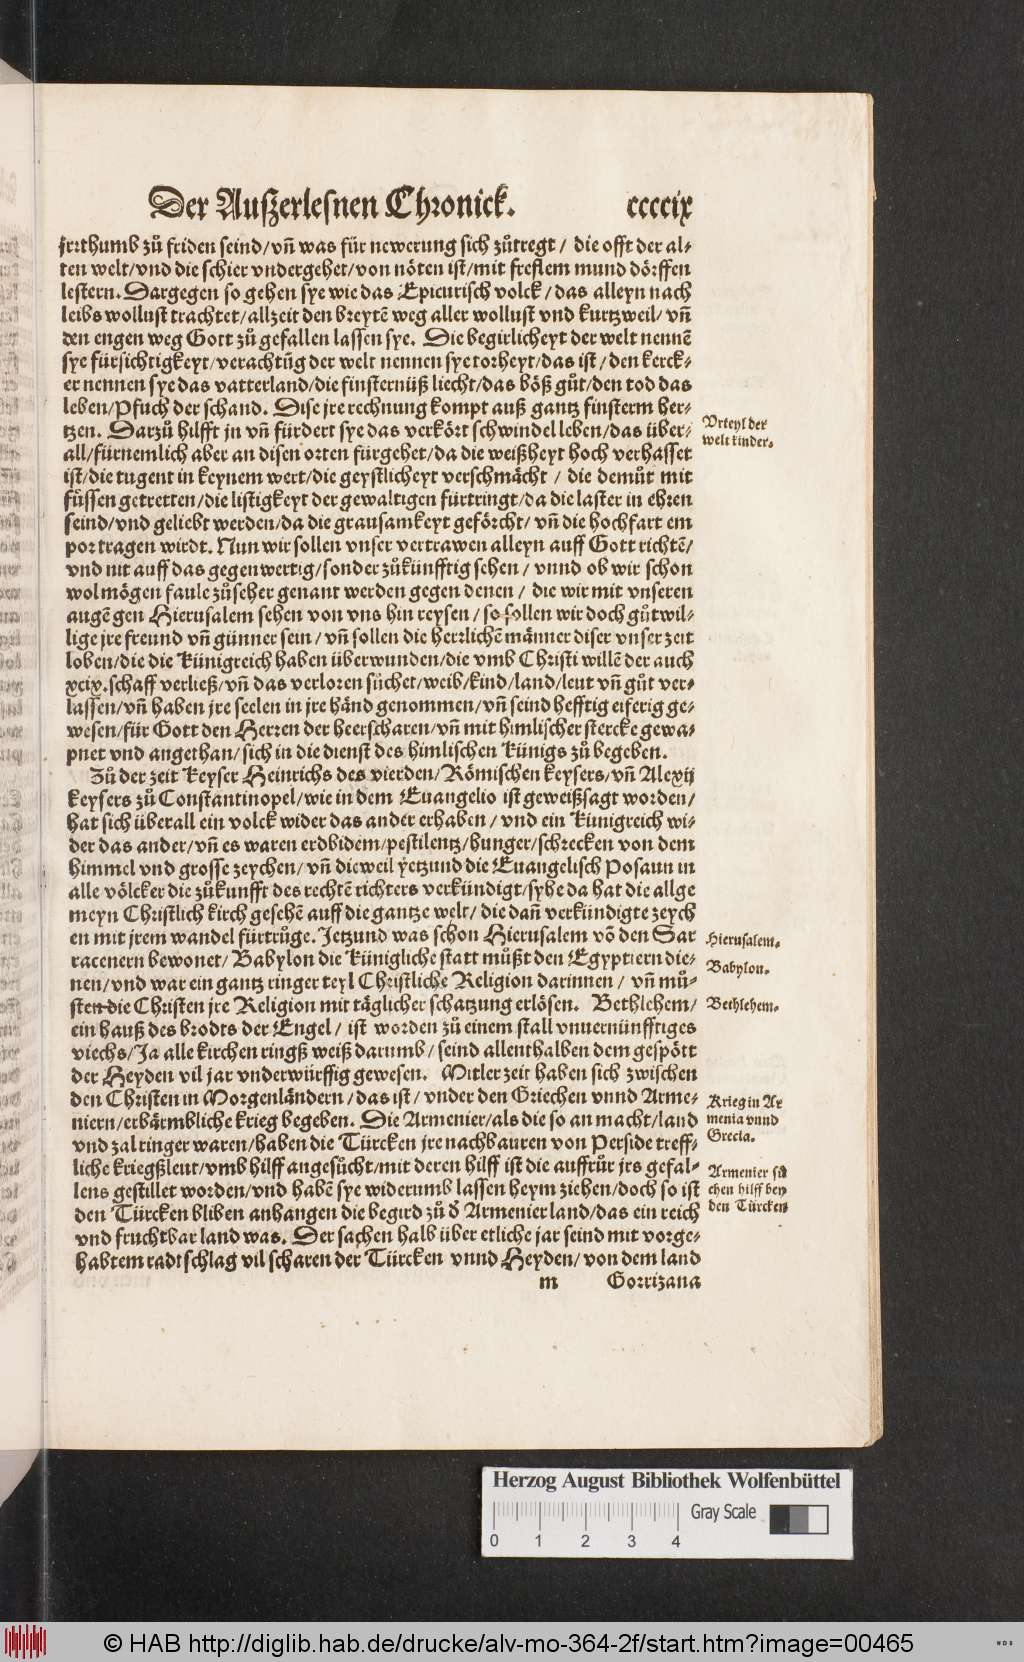 Der Außerlesnen Chronick. ccccix
jrrthumb zů friden seind/vñ was für newerung sich zůtregt/ die offt der al-
ten welt/vnd die schier vndergehet/von nöten ist/mit freflem mund dörffen
lestern. Dargegen so gehen sye wie das Epicurisch volck/das alleyn nach
leibs wollust trachtet/allzeit den breytē weg aller wollust vnd kurtzweil/vñ
den engen weg Gott zů gefallen lassen sye. Die begirlicheyt der welt nennē
sye fürsichtigkeyt/verachtūg der welt nennen sye torheyt/das ist/den kerck-
er nennen sye das vatterland/die finsternüß liecht/das böß gůt/den tod das
leben/Pfuch der schand. Dise jre rechnung kompt auß gantz finsterm her-
tzen. Darzů hilfft jn vñ fürdert sye das verkört schwindel leben/das über-
all/fürnemlich aber an disen orten fürgehet/da die weißheyt hoch verhasset
ist/die tugent in keynem wert/die geystlicheyt verschmächt/ die demůt mit
füssen getretten/die listigkeyt der gewaltigen fürtringt/da die laster in ehren
seind/vnd geliebt werden/da die grausamkeyt geförcht/vñ die hochfart em
por tragen wirdt. Nun wir sollen vnser vertrawen alleyn auff Gott richtē/
vnd nit auff das gegenwertig/sonder zůkünfftig sehen/vnnd ob wir schon
wol mögen faule zůseher genant werden gegen denen/ die wir mit vnseren
augē gen Hierusalem sehen von vns hin reysen/so sollen wir doch gůtwil-
lige jre freund vñ günner sein/vñ sollen die herrlichē männer diser vnser zeit
loben/die die Künigreich haben überwunden/die vmb Christi willē der auch
xcix. schaff verließ/vñ das verloren süchet/weib/kind/land/leut vñ gůt ver-
lassen/vñ haben jre seelen in jre händ genommen/vñ seind hefftig eiferig ge-
wesen/für Gott den Herren der heerscharen/vñ mit himlischer stercke gewa-
pnet vnd angethan/sich in die dienst des himlischen Künigs zů begeben.
Zů der zeit Keyser Heinrichs des vierden/Römischen keysers/vñ Alexij
keysers zů Constantinopel/wie in dem Euangelio ist geweißsagt worden/
hat sich überall ein volck wider das ander erhaben/ vnd ein Künigreich wi-
der das ander/vñ es waren erdbidem/pestilentz/hunger/schrecken von dem
himmel vnd grosse zeychen/vñ dieweil yetzund die Euangelisch Posaun in
alle völcker die zůkunfft des rechtē richters verkündigt/syhe da hat die allge
meyn Christlich kirch gesehē auff die gantze welt/die dañ verkündigte zeych
en mit jrem wandel fürtrůge. Jetzund was schon Hierusalem vō den Sar
racenern bewonet/Babylon die Künigliche statt můßt den Egyptiern die-
nen/vnd war ein gantz ringer teyl Christliche Religion darinnen/ vñ mů-
sten die Christen jre Religion mit täglicher schatzung erlösen. Bethlehem/
ein hauß des brodts der Engel/ ist worden zů einem stall vnuernünfftiges
viechs/Ja alle kirchen ringß weiß darumb/seind allenthalben dem gespött
der Heyden vil jar vnderwürffig gewesen. Mitler zeit haben sich zwischen
den Christen in Morgenländern/das ist/vnder den Griechen vnnd Arme-
niern/erbärmbliche krieg begeben. Die Armenier/als die so an macht/land
vnd zal ringer waren/haben die Türcken jre nachbauren von Perside treff-
liche kriegßleut/vmb hilff angesůcht/mit deren hilff ist die auffrůr jrs gefal-
lens gestillet worden/vnd habē sye widerumb lassen heym ziehen/doch so ist
den Türcken bliben anhangen die begird zů d' Armenier land/das ein reich
vnd fruchtbar land was. Der sachen halb über etliche jar seind mit vorge-
habtem radtschlag vil scharen der Türcken vnnd Heyden/von dem land
m Gorrizana
Vrteyl der
welt kinder.
Hierusalem.
Babylon.
Bethlehem.
Krieg in Ar
menia vnnd
Grecia.
Armenier sů
chen hilff bey
den Türcken
Herzog August Bibliothek Wolfenbüttel
Gray Scale
0 1 2 3 4
© HAB http://diglib.hab.de/drucke/alv-mo-364-2f/start.htm?image=00465